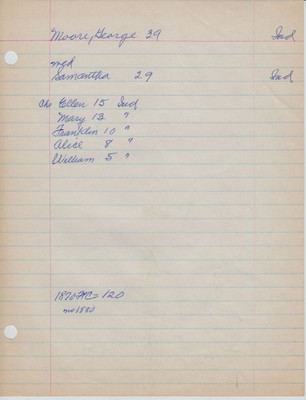 Moore, George 39 Ind
mgd
Samantha 29 Ind
Chs Ellen 15 Ind
Mary 13 "
Franklin 10 "
Alice 8 "
William 5 "
1870 = 120
no 1880